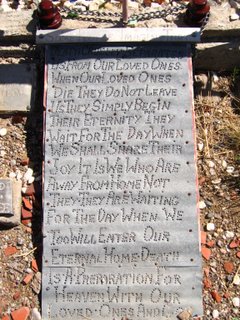 Us From Our Loved Ones
When Our Loved Ones
Die They Do Not Leave
Us They Simply Begin
Their Eternity They
Wait For The Day When
We Shall Share Their
Joy It Is We Who Are
Away From Home Not
They They Are Waiting
For The Day When We
Too Will Enter Our
Eternal Home Death
Is A Preparation For
Heaven With Our
Loved Ones And